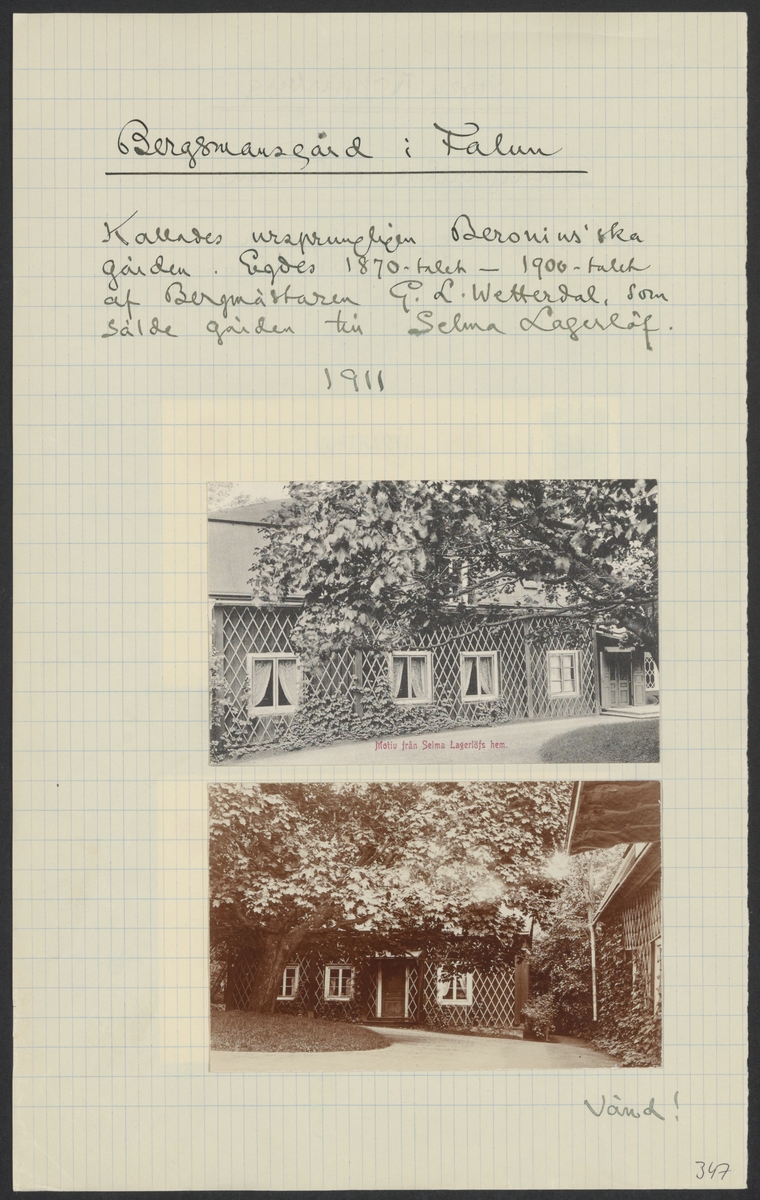 Bergsmansgård i Falun
Kallades ursprungligen Beronius'ska
gården. Egdes 1870-talet – 1900-talet
af Bergmästaren G. L. Wetterdal, som
sålde gården till Selma Lagerlöf.
1911
Motiv från Selma Lagerlöfs hem.
Vänd!
347